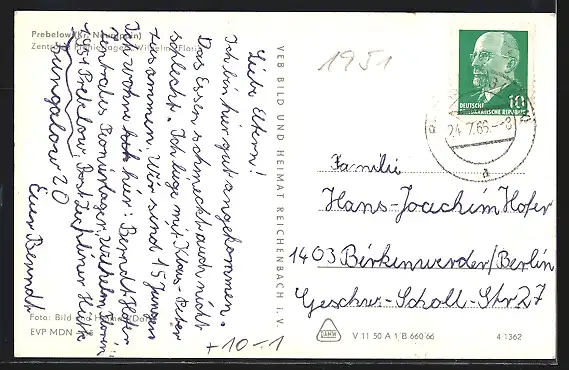 Prebelow (Kr. Neuruppin)
Zentrales Pionierlager „Wilhelm Florin“
Liebe Eltern!
Ich bin hier gut angekommen.
Das Essen schmeckt auch nicht
schlecht. Ich liege mit Klaus-Peter
zusammen. Wir sind 15 Jungen
Ich wohne hier: Berndt Hofer
Zentrales Pionierlager Wilhelm Florin
1951 Prebelow, Post Zechliner Hütte
Bungalow 20
Euer Berndt
Foto: Bild und Heimat
EVP MDN
VEB BILD UND HEIMAT REICHENBACH I. V.
1951
DEUTSCHE
DEMOKRATISCHE REPUBLIK
10
24.7.66.-8
a
Familie
Hans-Joachim Hofer
1403 Birkenwerder/Berlin
Geschw.-Scholl-Str 27
V 11 50 A 1/B 660/66
4/1362
+10-1